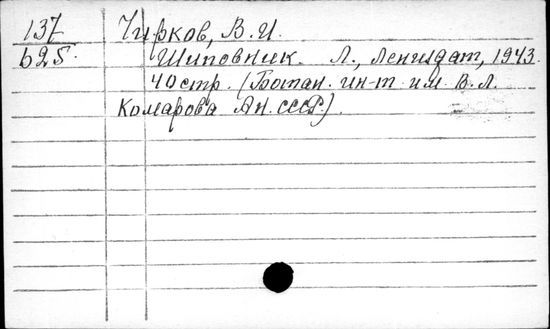 137 Чирков, В. И.
625. Шиповник. Л., Лениздат, 1943.
40 стр. (Ботан. ин-т им. В. Л.
Комарова Ан. СССР).